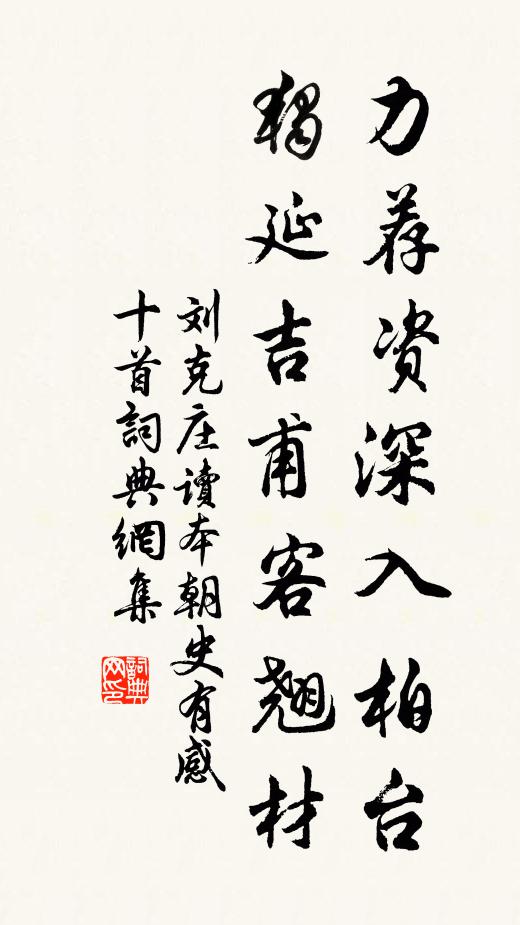 力荐资深入柏台
独延吉甫客翘材
刘克庄读本朝史有感
十首詞典網集
詞典网印